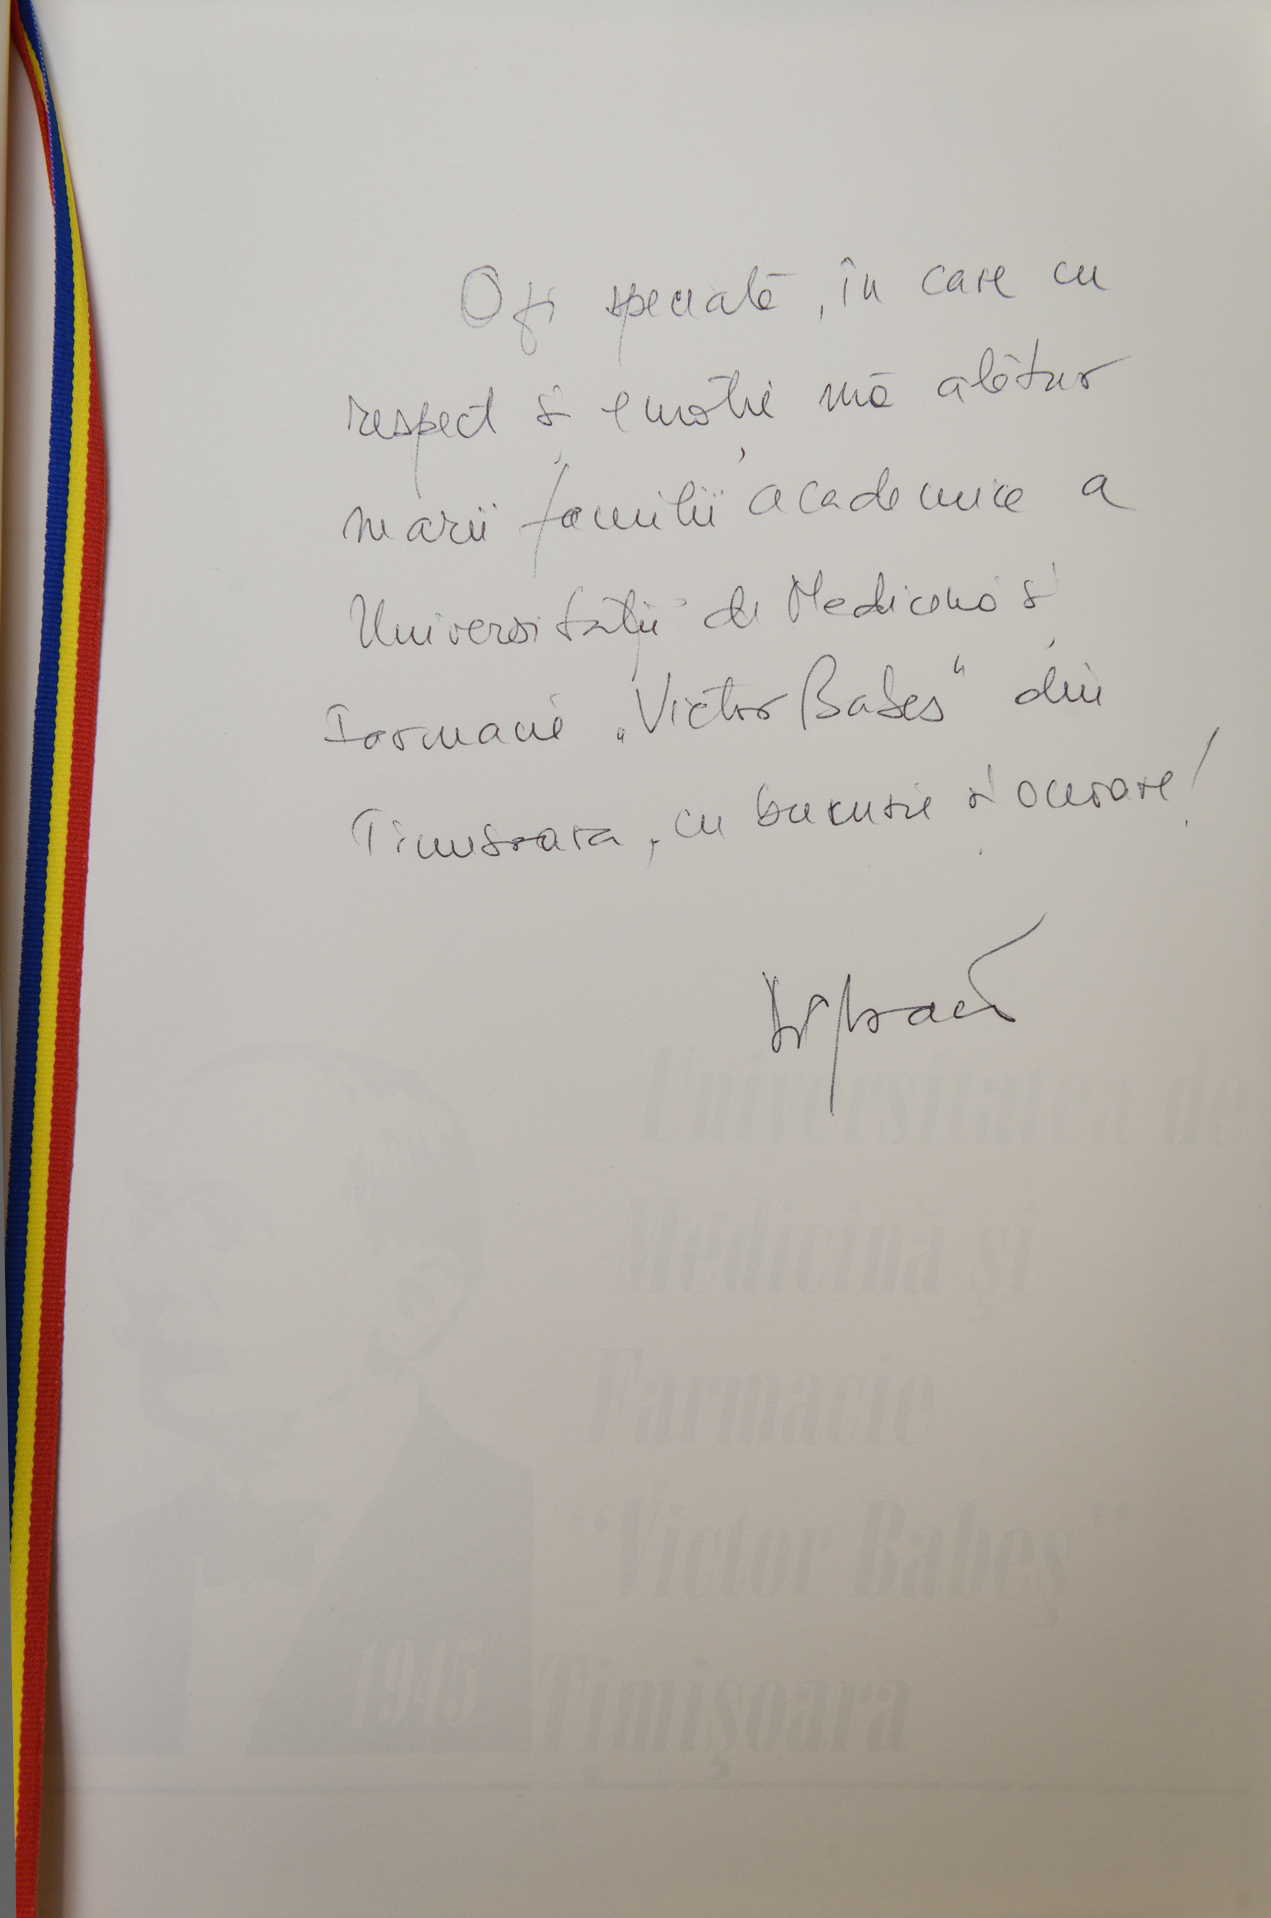 O zi specială, în care cu
respect și emoție mă alătur
marii familii academice a
Universității de Medicină și
Farmacie „Victor Babeș“ din
Timișoara, cu bucurie și onoare!
Universitatea de
Medicină și
Farmacie
“Victor Babeș”
1945 Timișoara